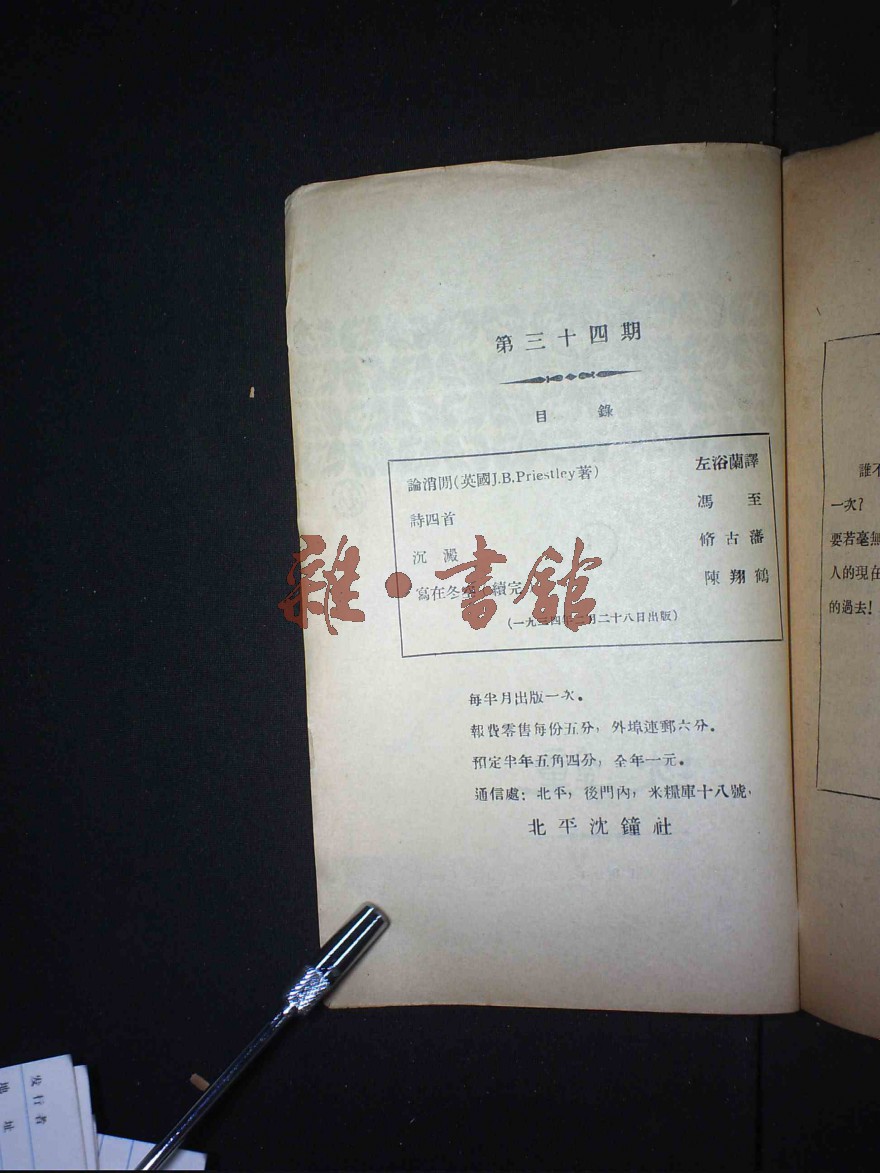 第三十四期
目錄
論消閒(英國J.B.Priestley著) 左浴蘭譯
詩四首 馮至
沉澱 脩古藩
寫在冬空 續完 陳翔鶴
(一九三四年二月二十八日出版)
每半月出版一次。
報費零售每份五分，外埠連郵六分。
預定半年五角四分，全年一元。
通信處：北平，後門內，米糧庫十八號，
北平沈鐘社
誰不
一次？
要若毫無
人的現在
的過去！
雜·書館
发行者
地址